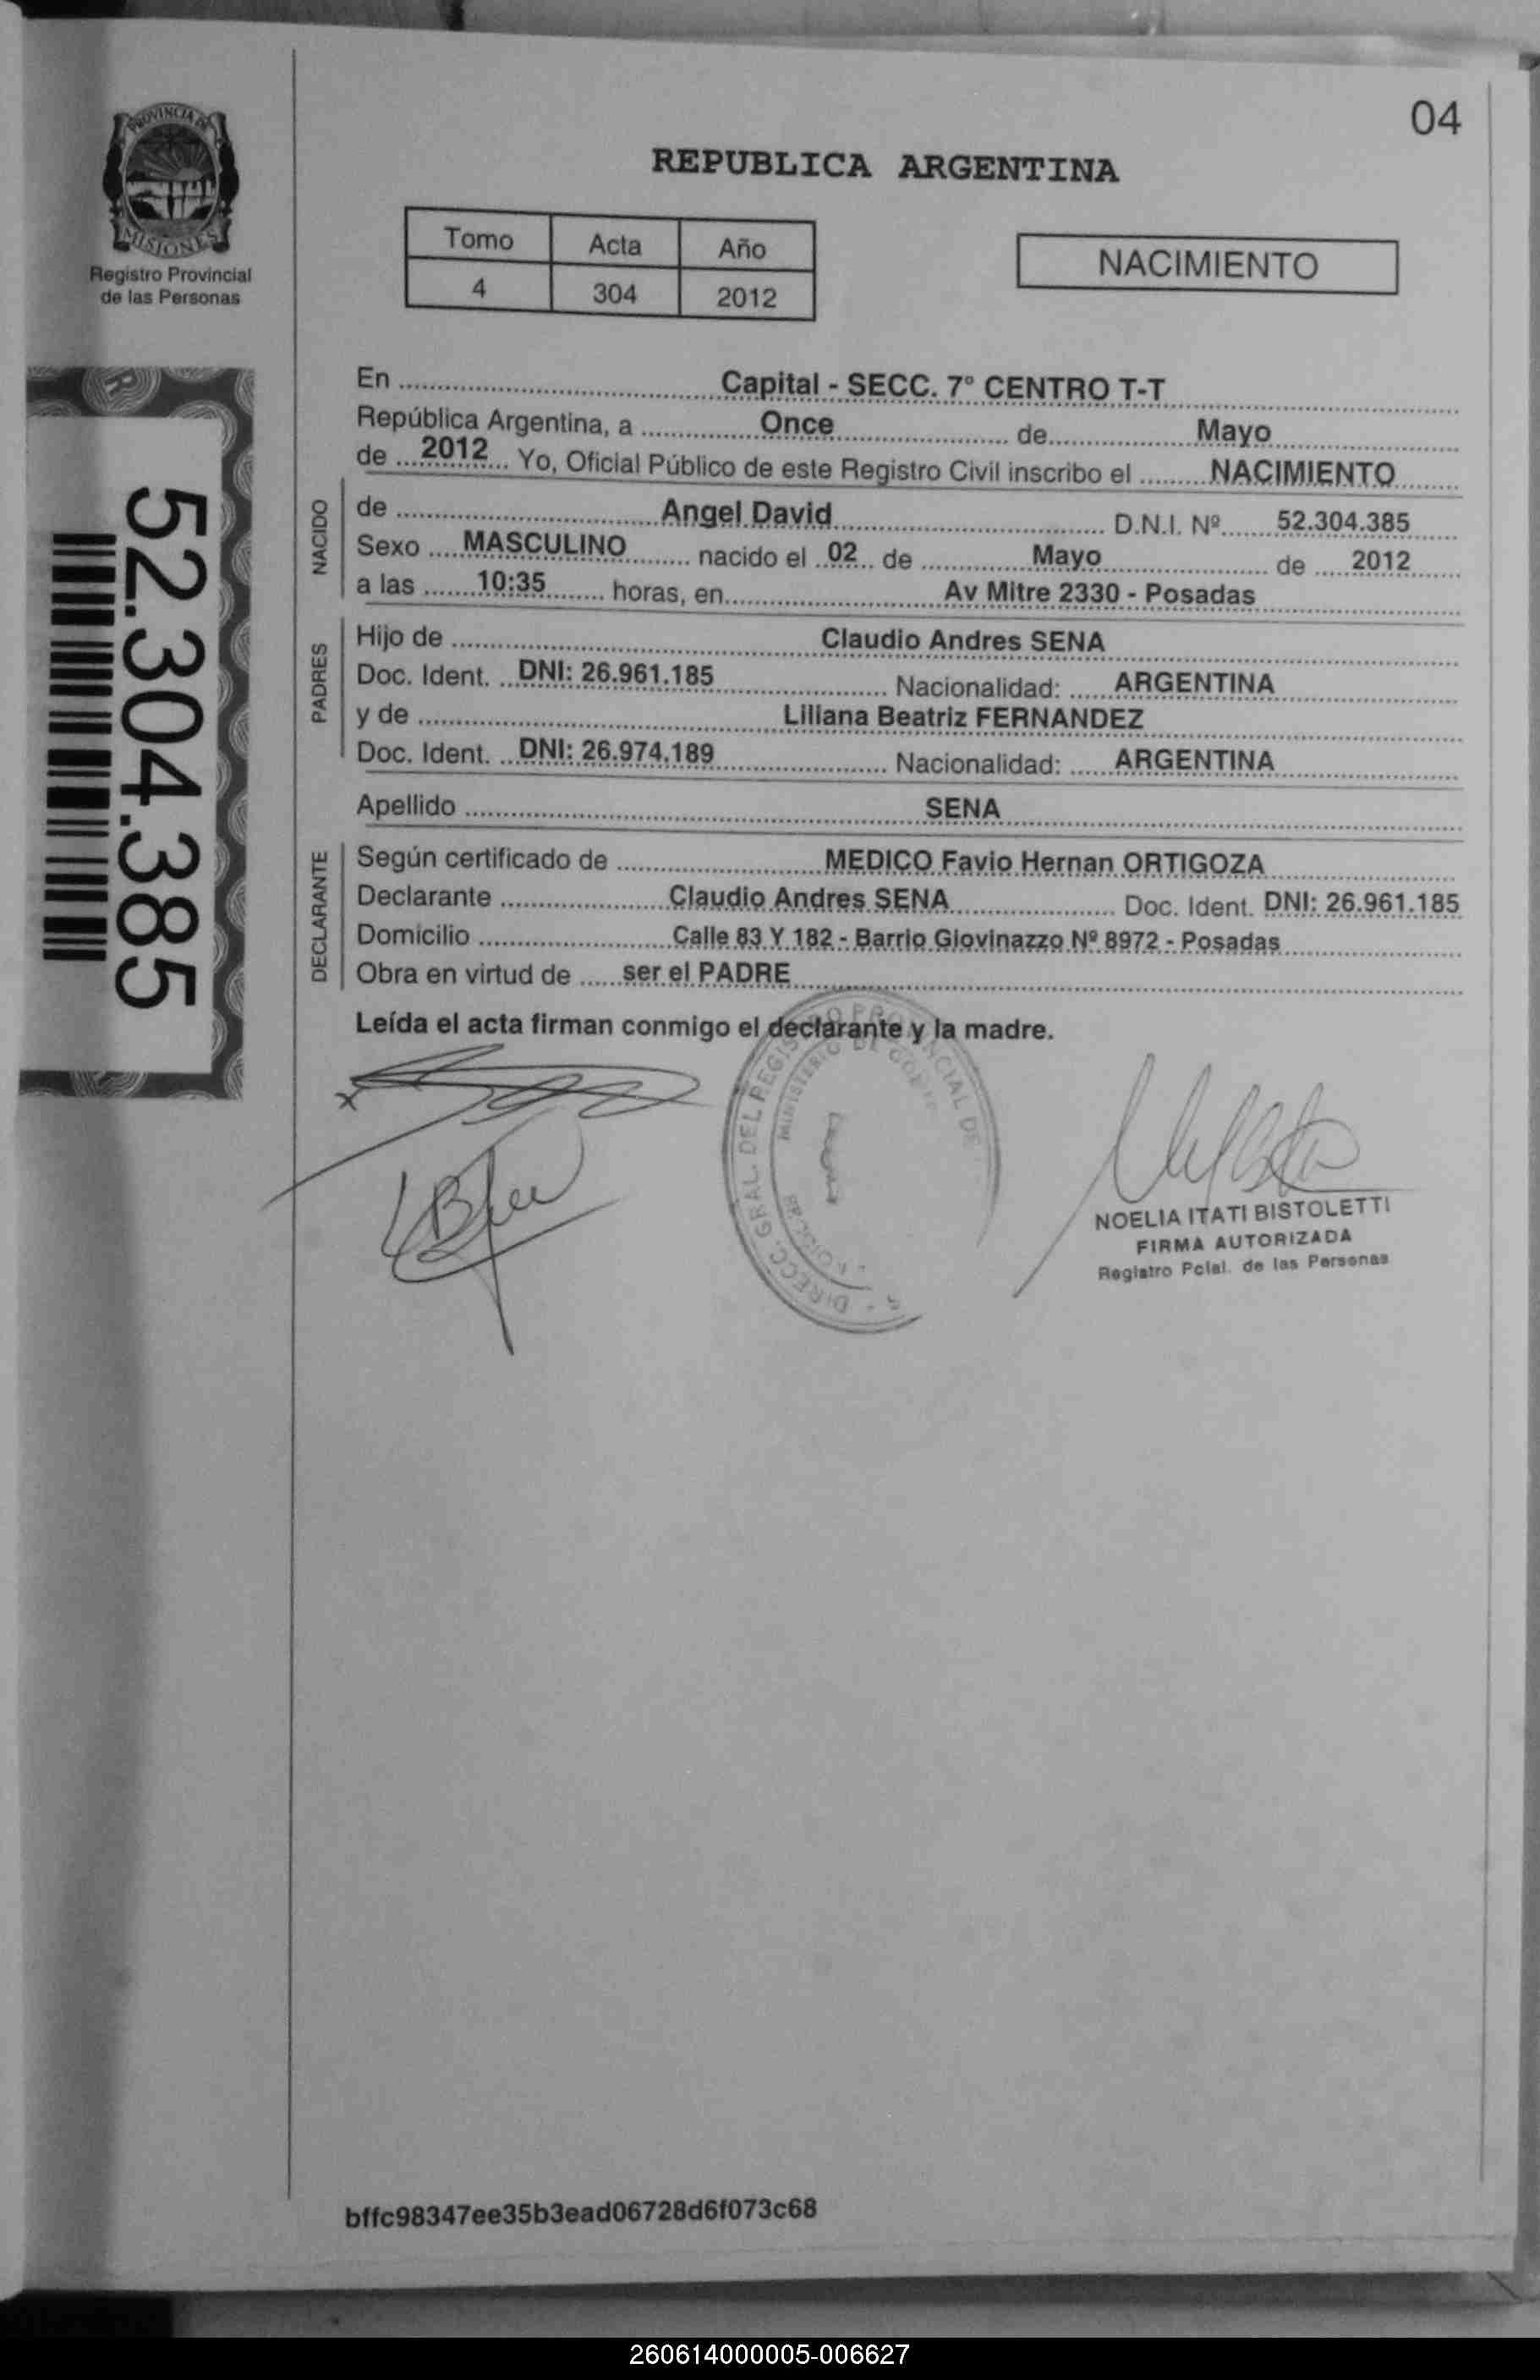 04
PROVINCIA DE
MISIONES
Registro Provincial
de las Personas
REPUBLICA ARGENTINA
Tomo Acta Año
4 304 2012
NACIMIENTO
52.304.385
En Capital - SECC. 7° CENTRO T-T
República Argentina, a Once de Mayo
de 2012 Yo, Oficial Público de este Registro Civil inscribo el NACIMIENTO
NACIDO
de Angel David D.N.I. Nº 52.304.385
Sexo MASCULINO nacido el 02 de Mayo de 2012
a las 10:35 horas, en Av Mitre 2330 - Posadas
PADRES
Hijo de Claudio Andres SENA
Doc. Ident. DNI: 26.961.185 Nacionalidad: ARGENTINA
y de Liliana Beatriz FERNANDEZ
Doc. Ident. DNI: 26.974.189 Nacionalidad: ARGENTINA
Apellido SENA
DECLARANTE
Según certificado de MEDICO Favio Hernan ORTIGOZA
Declarante Claudio Andres SENA Doc. Ident. DNI: 26.961.185
Domicilio Calle 83 Y 182 - Barrio Giovinazzo Nº 8972 - Posadas
Obra en virtud de ser el PADRE
Leída el acta firman conmigo el declarante y la madre.
DIRECC. GRAL. DEL REGISTRO PROVINCIAL DE
MINISTERIO DE
NOELIA ITATI BISTOLETTI
FIRMA AUTORIZADA
Registro Pcial. de las Personas
bffc98347ee35b3ead06728d6f073c68
260614000005-006627